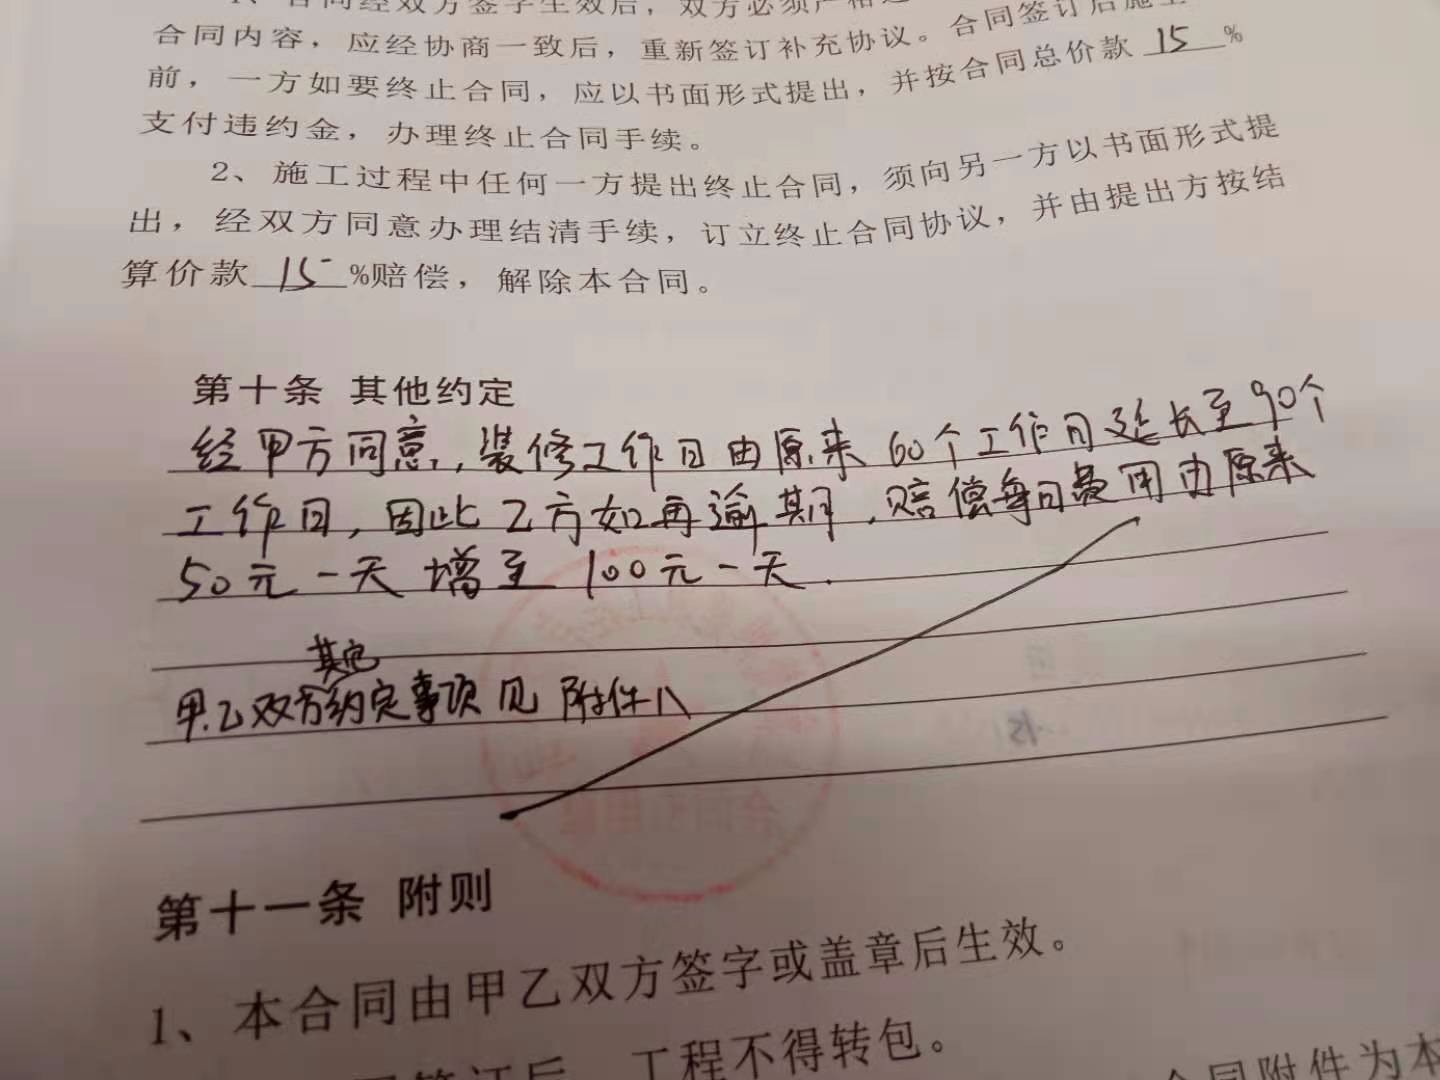 1、合同经双方签字生效后，双方必须严格
合同内容，应经协商一致后，重新签订补充协议。合同签订后施工
前，一方如要终止合同，应以书面形式提出，并按合同总价款 15 %
支付违约金，办理终止合同手续。
2、施工过程中任何一方提出终止合同，须向另一方以书面形式提
出，经双方同意办理结清手续，订立终止合同协议，并由提出方按结
算价款 15 %赔偿，解除本合同。
第十条 其他约定
经甲方同意，装修工作日由原来60个工作日延长至90个
工作日，因此乙方如再逾期，赔偿每日费用由原来
50元一天增至100元一天.
其它
甲.乙双方约定事项见 附件八
第十一条 附则
1、本合同由甲乙双方签字或盖章后生效。
签订后，工程不得转包。
合同附件为本